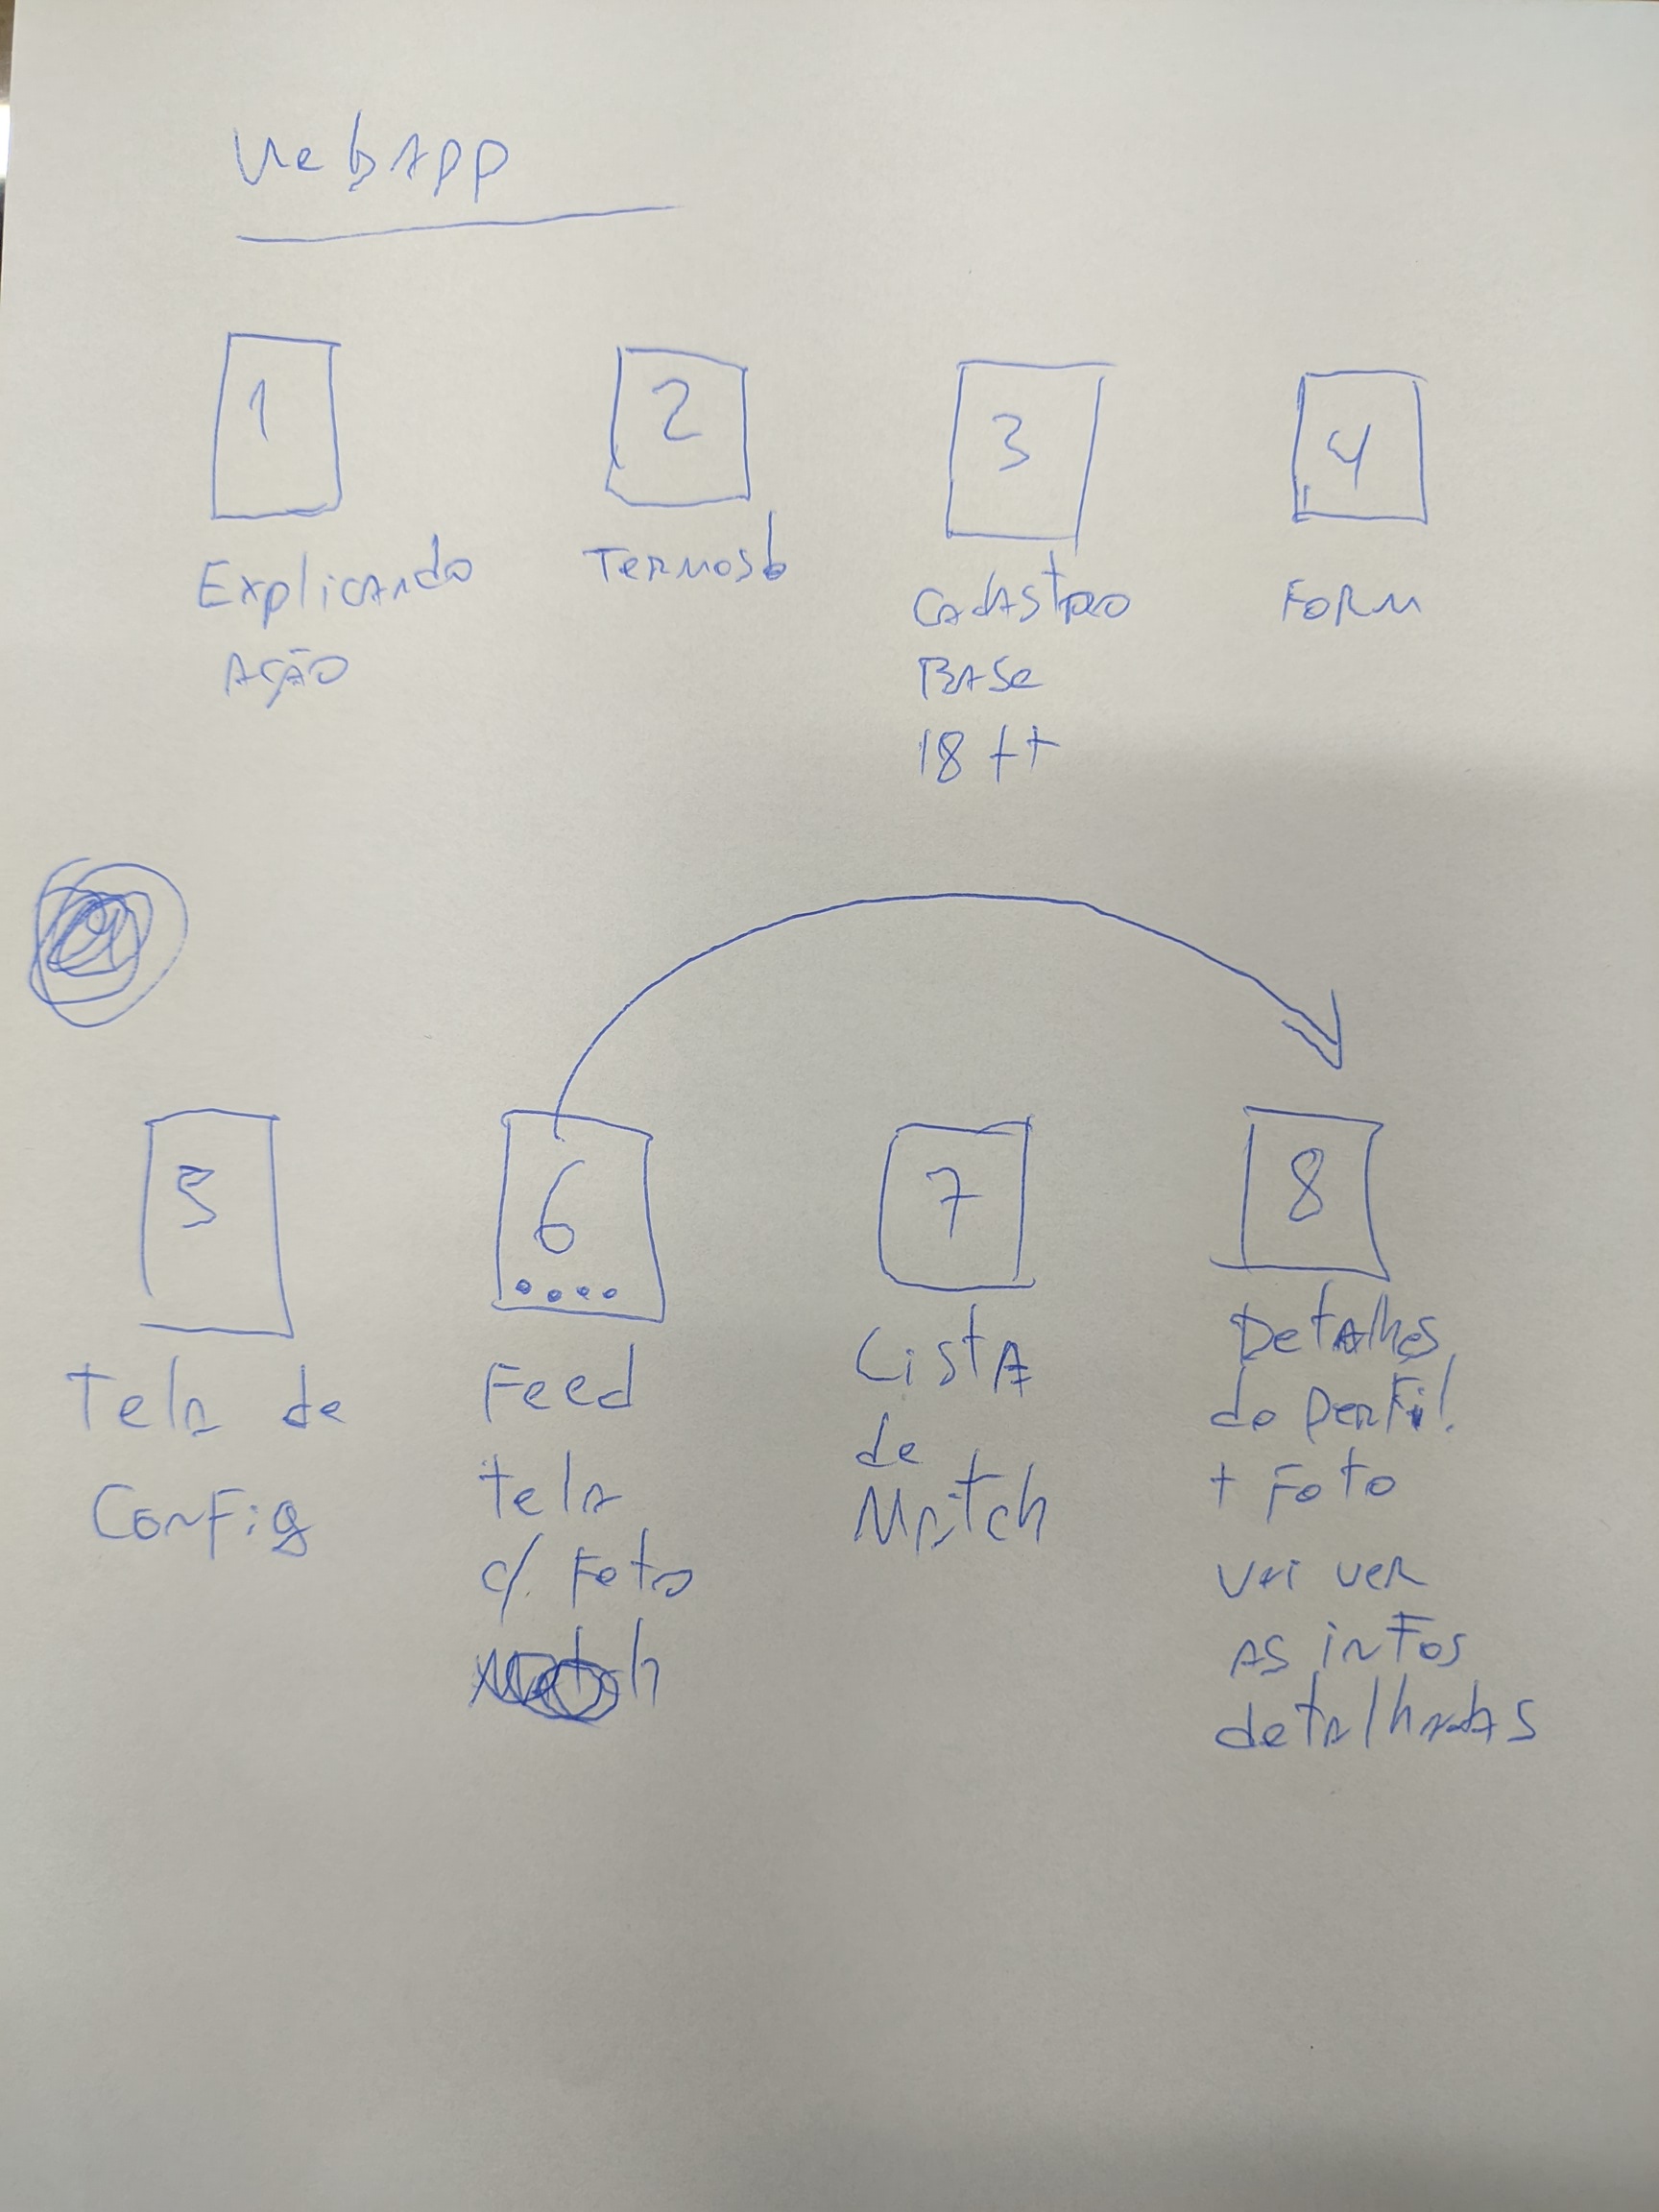 WebApp
1
2
3
4
Explicando
Ação
Termos
Cadastro
Base
18 ++
Form
5
6
7
8
Tela de
Config
Feed
tela
c/. Foto
Lista
de
Match
Detalhes
do perfil.
+ Foto
vai ver
as infos
detalhadas